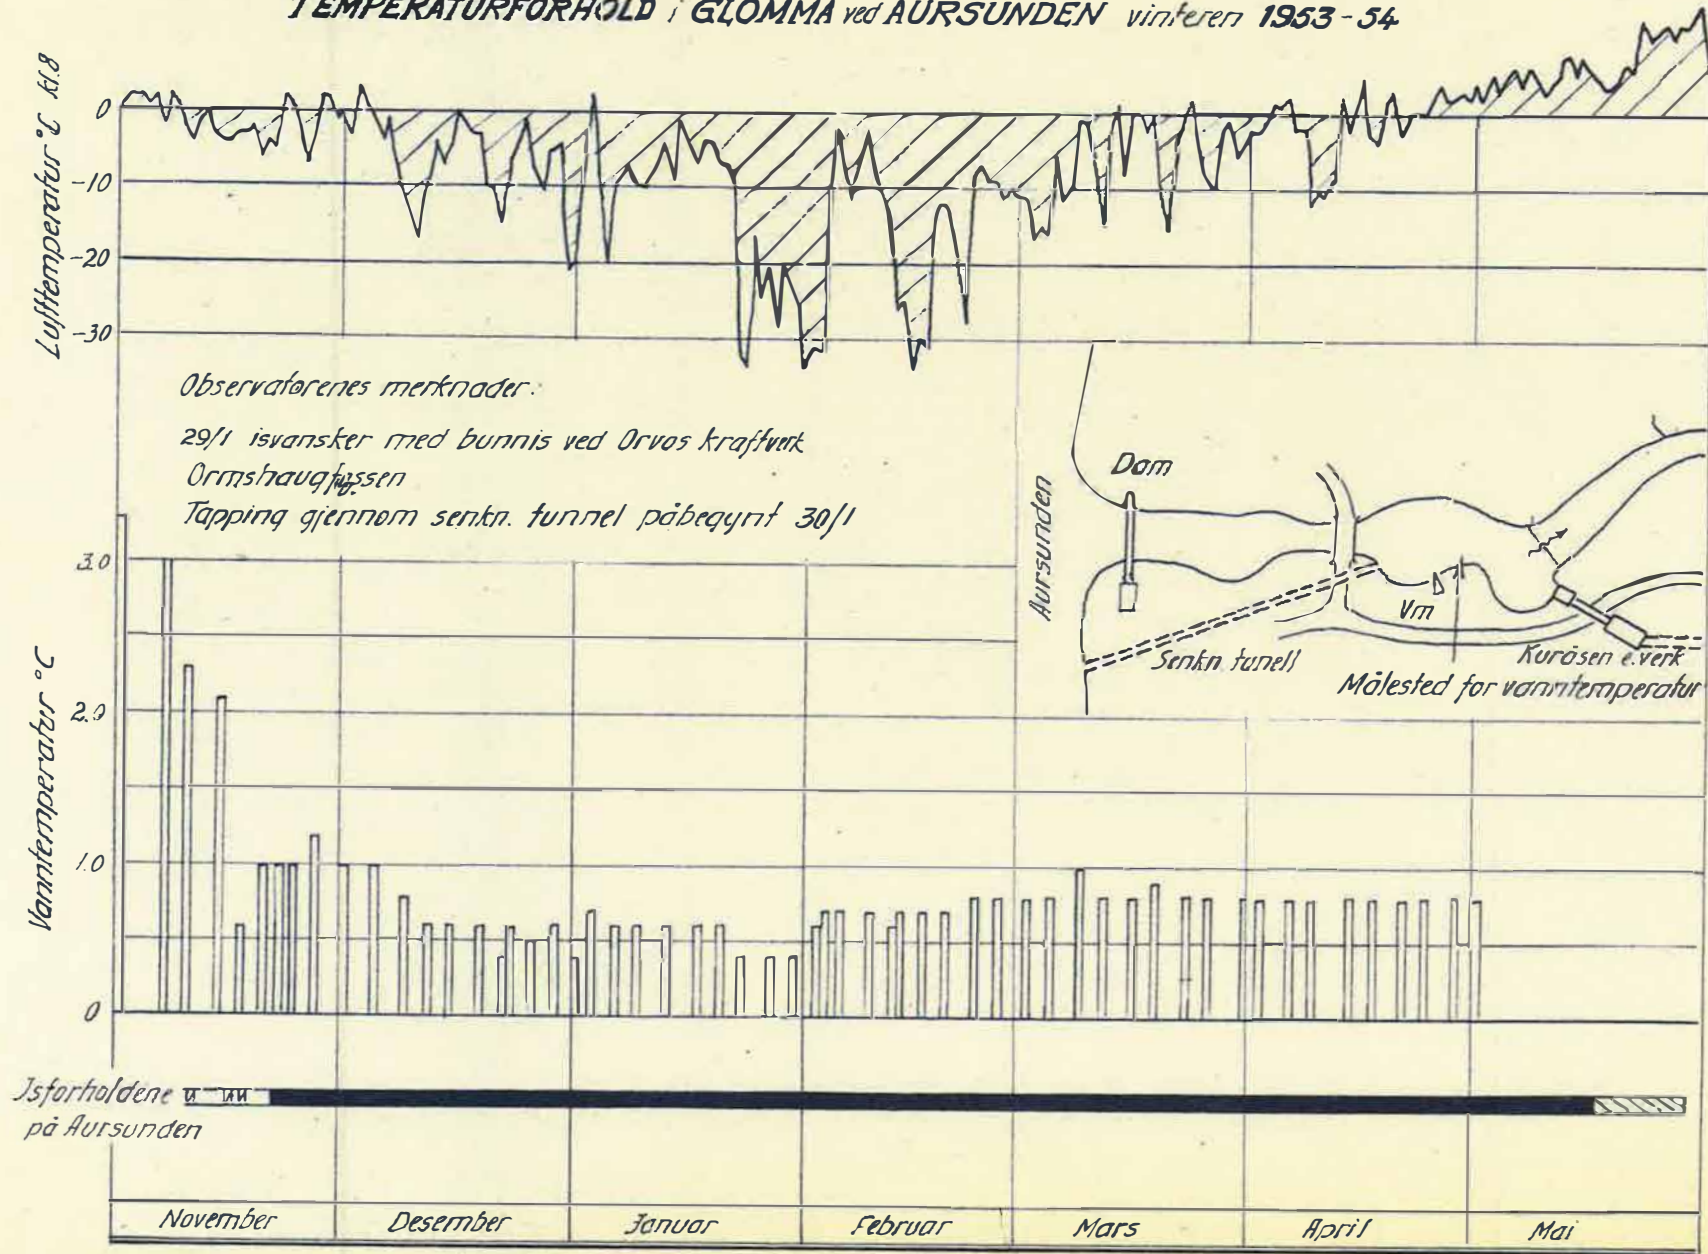 TEMPERATURFORHOLD i GLOMMA ved AURSUNDEN vinteren 1953-54
Lufttemperatur °C kl.8
0
-10
-20
-30
Observatorenes merknader:
29/1 isvansker med bunnis ved Orvos kraftverk
Ormshaugfossen
Tapping gjennom senkn. tunnel påbegynt 30/1
Aursunden
Dam
Vm
Senkn. tunell
Kuråsen e.verk
Målested for vanntemperatur
Vanntemperatur °C
3.0
2.0
1.0
0
Isforholdene
på Aursunden
November Desember Januar Februar Mars April Mai